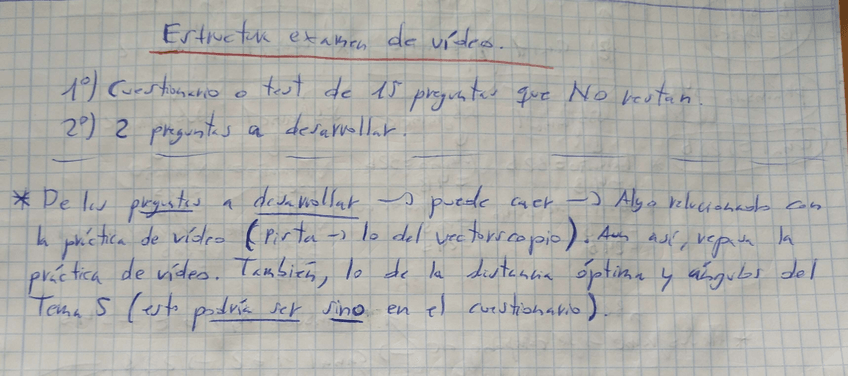 Estructura examen de vídeo.
1º) Cuestionario o test de 15 preguntas que NO restan.
2º) 2 preguntas a desarrollar.
* De las preguntas a desarrollar → puede caer → Algo relacionado con
la práctica de vídeo (Pista → lo del vectorscopio). Aun así, repasa la
práctica de vídeo. También, lo de la distancia óptima y ángulos del
Tema 5 (esto podría ser sino en el cuestionario).